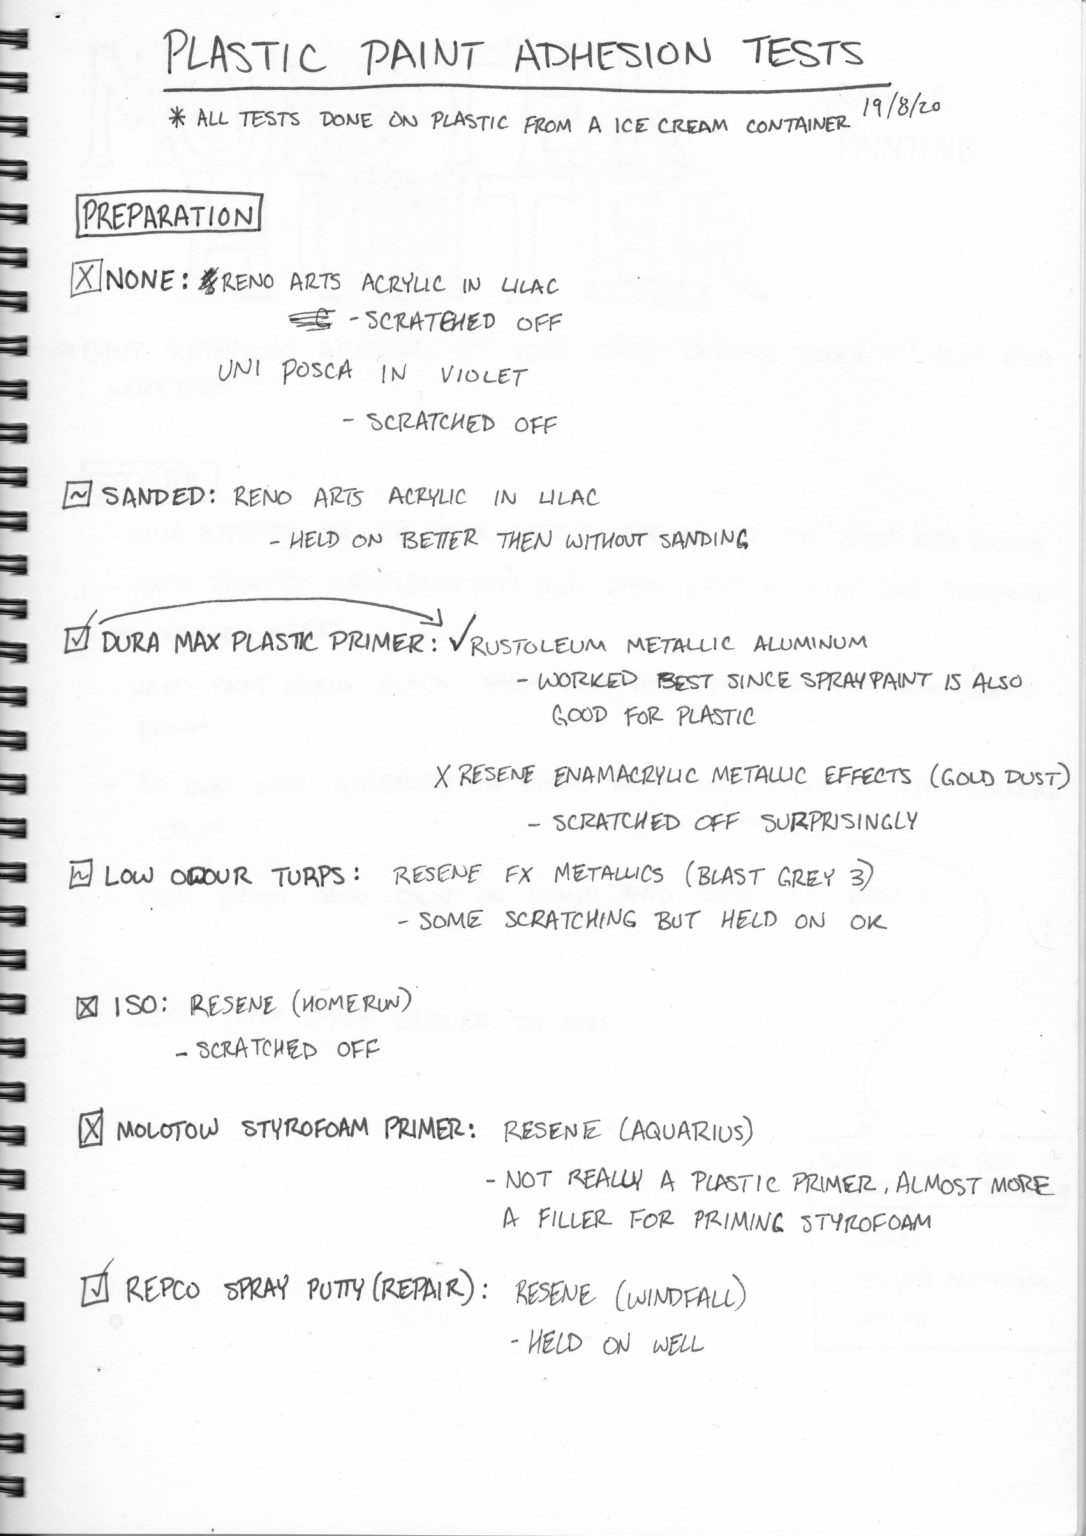 PLASTIC PAINT ADHESION TESTS
19/8/20
* ALL TESTS DONE ON PLASTIC FROM A ICE CREAM CONTAINER
PREPARATION
X NONE: RENO ARTS ACRYLIC IN LILAC
- SCRATCHED OFF
UNI POSCA IN VIOLET
- SCRATCHED OFF
~ SANDED: RENO ARTS ACRYLIC IN LILAC
- HELD ON BETTER THEN WITHOUT SANDING
✓ DURA MAX PLASTIC PRIMER: ✓ RUSTOLEUM METALLIC ALUMINUM
- WORKED BEST SINCE SPRAYPAINT IS ALSO
GOOD FOR PLASTIC
X RESENE ENAMACRYLIC METALLIC EFFECTS (GOLD DUST)
- SCRATCHED OFF SURPRISINGLY
~ LOW ODOUR TURPS: RESENE FX METALLICS (BLAST GREY 3)
- SOME SCRATCHING BUT HELD ON OK
X ISO: RESENE (HOMERUN)
- SCRATCHED OFF
X MOLOTOW STYROFOAM PRIMER: RESENE (AQUARIUS)
- NOT REALLY A PLASTIC PRIMER, ALMOST MORE
A FILLER FOR PRIMING STYROFOAM
✓ REPCO SPRAY PUTTY (REPAIR): RESENE (WINDFALL)
- HELD ON WELL